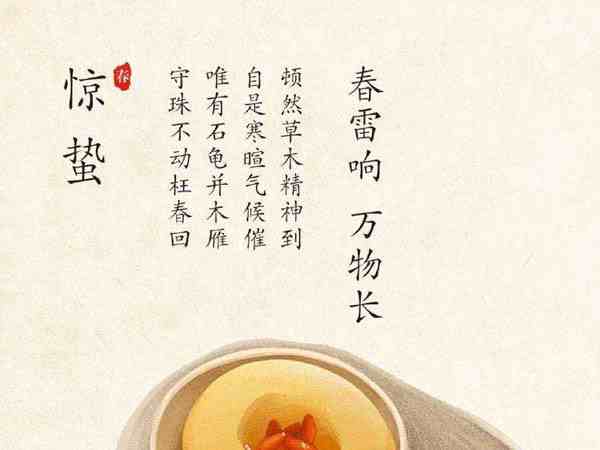 春雷响 万物长
顿然草木精神到
自是寒暄气候催
唯有石龟并木雁
守珠不动枉春回
惊蛰
春